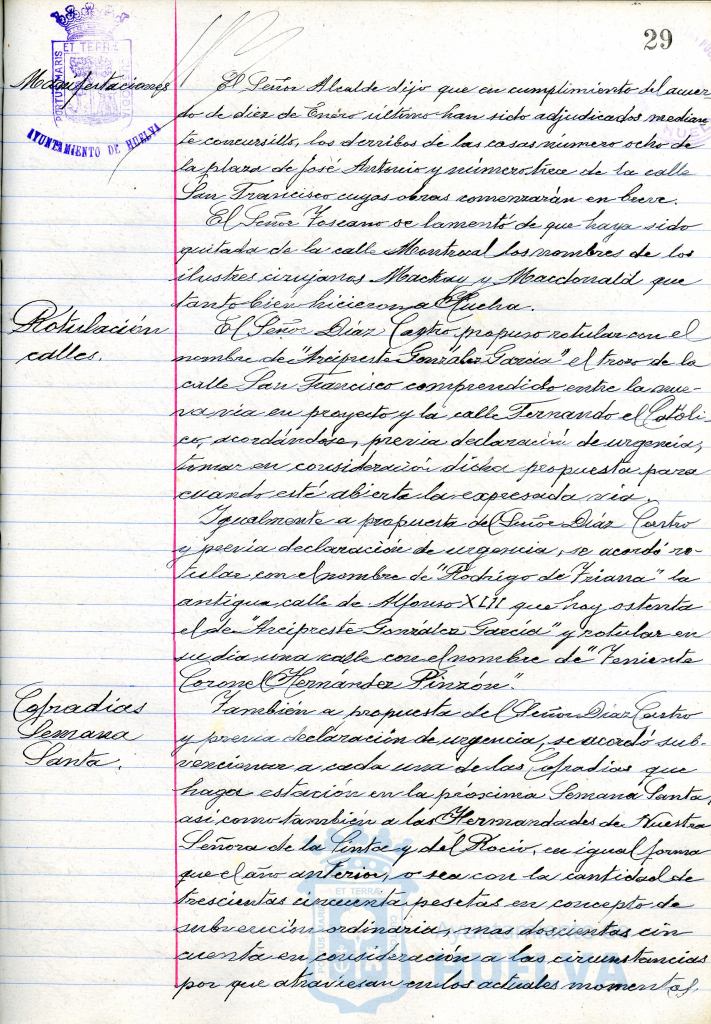 29
ET TERRE
PORTUS MARIS
CUSTODIA
AYUNTAMIENTO DE HUELVA
Manifestaciones
El Señor Alcalde dijo que en cumplimiento del acuer-
do de diez de Enero último han sido adjudicados median-
te concursillo, los derribos de las casas número ocho de
la plaza de José Antonio y número trece de la calle
San Francisco cuyas obras comenzarán en breve.
El Señor Toscano se lamentó de que haya sido
quitada de la calle Montrocal los nombres de los
ilustres cirujanos Mackay y Macdonald que
tanto bien hicieron a Huelva.
Rotulación
calles.
El Señor Díaz Castro propuso rotular con el
nombre de "Arcipreste González García" el trozo de la
calle San Francisco comprendido entre la nue-
va vía en proyecto y la calle Fernando el Católi-
co, acordándose, previa declaración de urgencia,
tomar en consideración dicha propuesta para
cuando esté abierta la expresada vía.
Igualmente a propuesta del Señor Díaz Castro
y previa declaración de urgencia, se acordó ro-
tular con el nombre de "Rodrigo de Triana" la
antigua calle de Alfonso XIII que hoy ostenta
el de "Arcipreste González García" y rotular en
su día una calle con el nombre de "Teniente
Coronel Hernández Pinzón".
Cofradías
Semana
Santa.
También a propuesta del Señor Díaz Castro
y previa declaración de urgencia, se acordó sub-
vencionar a cada una de las Cofradías que
haga estación en la próxima Semana Santa,
así como también a las Hermandades de Nuestra
Señora de la Cinta y del Rocío, en igual forma
que el año anterior, o sea con la cantidad de
trescientas cincuenta pesetas en concepto de
subvención ordinaria, mas doscientas cin
cuenta en consideración a las circunstancias
por que atraviesan en los actuales momentos,
ET TERRA
PORTUS MARIS
Ayuntamiento
HUELVA